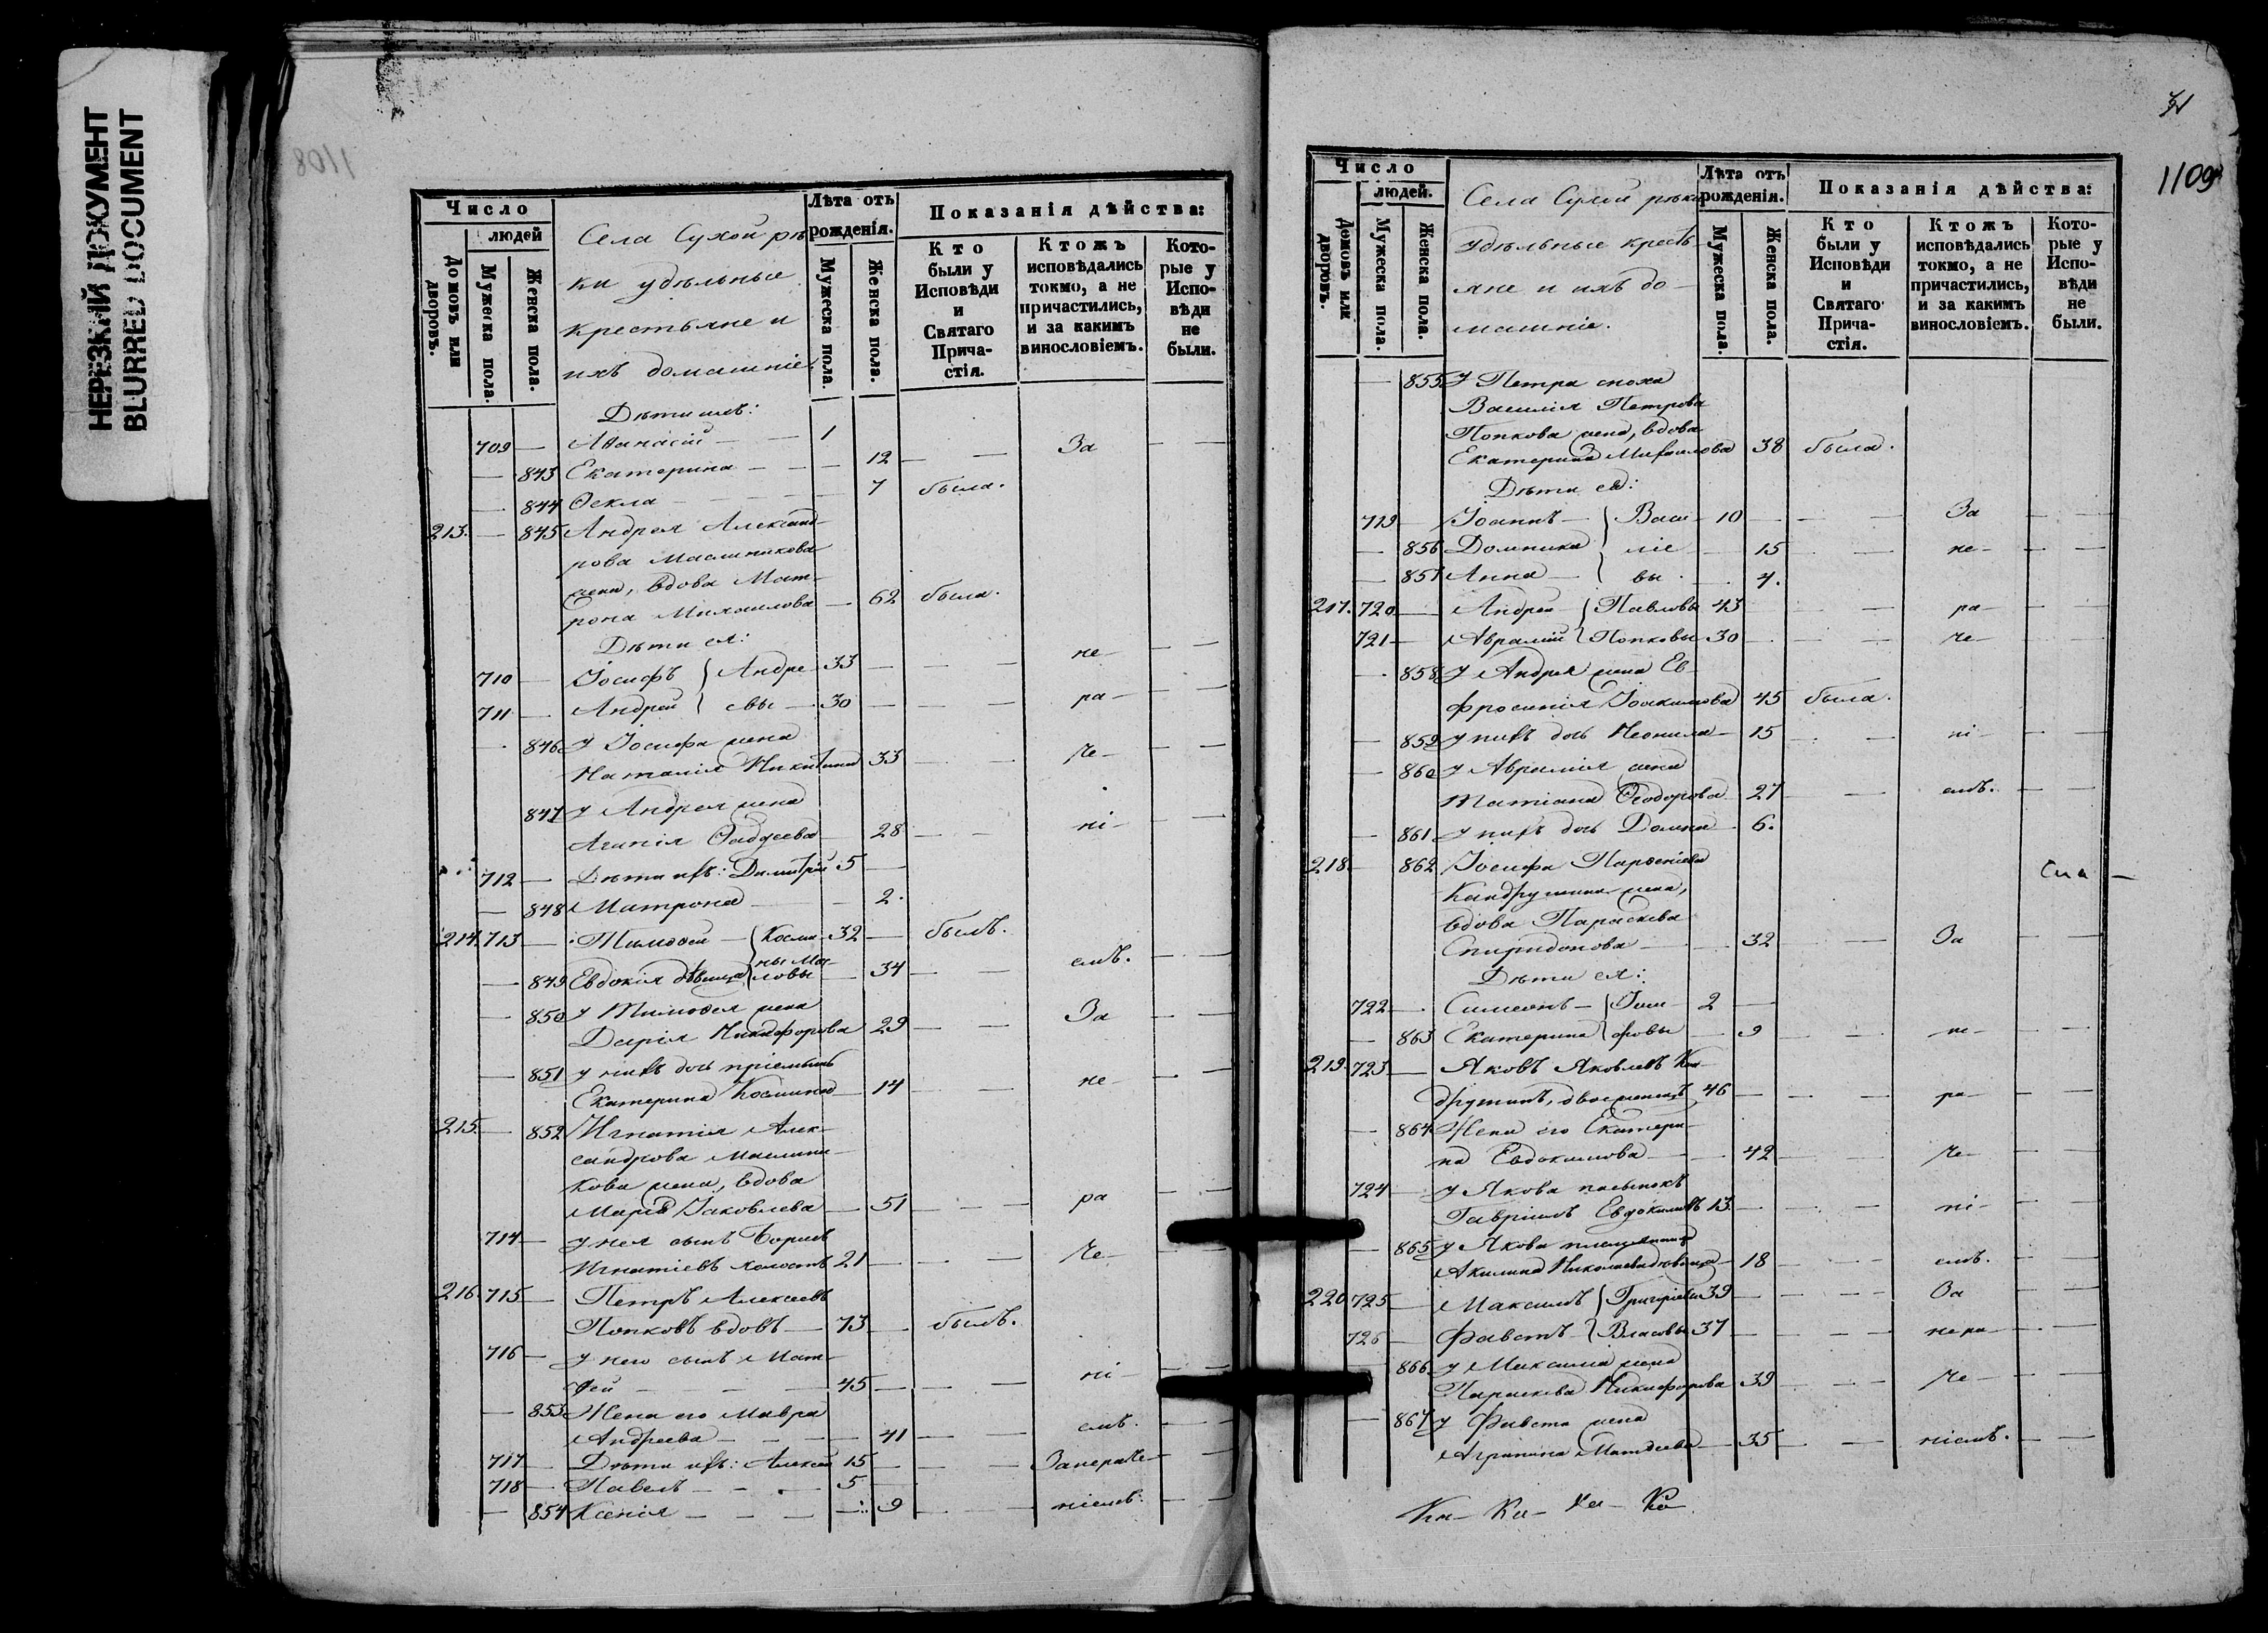 НЕРЕЗКИЙ ДОКУМЕНТ
BLURRED DOCUMENT
1108
Число
людей
Домовъ или дворовъ.
Мужеска пола.
Женска пола.
Села Сухой рѣ-
ки удѣльные
крестьяне и
ихъ домашніе
Лѣта отъ рожденія.
Мужеска пола.
Женска пола.
Показанія дѣйства:
Кто были у Исповѣди и Святаго Прича-стія.
Ктожъ исповѣдались токмо, а не причастились, и за какимъ винословіемъ.
Кото-рые у Испо-вѣди не были.
Дѣти ихъ:
709 — Аѳанасій — — 1 За — —
— 843 Екатерина — — — 12 — —
— 844 Ѳекла — — — — 7 была.
213. — 845 Андрея Александ-
рова Масленикова
жена, вдова Мат-
рона Михаилова — 62 была.
Дѣти ея:
710 — Іосифъ } Андре- 33 — — — не — — —
711 — Андрей } евы — 30 — — — ра — — —
— 846 У Іосифа жена
Наталія Никитина 33 — — че — — —
847 У Андрея жена
Агапія Ѳаддеева — 28 — — ні — — —
712 — Дѣти ихъ: Димитрій 5 —
— 848 Матрона — 2.
214. 713 — Тимоѳей — { Косми- 32 — былъ.
— 849 Евдокія дѣвица { ны Ма-ловы — 34 — — емъ. — —
— 850 У Тимоѳея жена
Дарія Никифорова 29 — — За — —
— 851 у нихъ дочь пріемышъ
Екатерина Космина — 14 — — не — — —
215. — 852 Игнатія Алек-
сандрова Маслени-
кова жена, вдова
Марія Іаковлева — 51 — — — ра — —
714 — у нея сынъ Борисъ
Игнатіевъ холостъ 21 — — — че — — —
216. 715 — Петръ Алексеевъ
Попковъ вдовъ — 73 — былъ.
716 — у него сынъ Мат-
ѳей — — — 45 — — — ні — — —
— 853 Жена его Мавра
Андреева — — — — 41 — — емъ. — —
717 — Дѣти ихъ: Алексей 15 — — — Занераче — — —
718 — Павелъ — — — 5 —
— 854 Ксенія — — — — 9 — — ніемъ. — —
1109
Число
людей.
Домовъ или дворовъ.
Мужеска пола.
Женска пола.
Села Сухой рѣки
удѣльные кресть-
яне и ихъ до-
машніе.
Лѣта отъ рожденія.
Мужеска пола.
Женска пола.
Показанія дѣйства:
Кто были у Исповѣди и Святаго Прича-стія.
Ктожъ исповѣдались токмо, а не причастились, и за какимъ винословіемъ.
Кото-рые у Испо-вѣди не были.
— 855 У Петра сноха
Василія Петрова
Попкова жена, вдова
Екатерина Михаилова 38 была.
Дѣти ея:
719 — Іоаннъ — } Васи- 10 — — — За — —
— 856 Домника } лье — 15 — — не — — —
— 857 Анна — } вы. — 4.
217. 720 — Андрей — { Павловы 43 — — ра — — —
721 — Аврамій { Попковы 30 — — — че — — —
— 858 У Андрея жена Ев-
фросинія Іоакимова 45 была.
— 859 у нихъ дочь Неонила — 15 — — ні — — —
— 860 У Аврамія жена
Татіана Ѳеодорова 27 — — емъ. — —
— 861 у нихъ дочь Домна — 6.
218. — 862 Іосифа Парѳеніева
Кандрушина жена,
вдова Параскева
Спиридонова — — 32 — — За — —
Дѣти ея:
722 — Симеонъ — { Іоси- 2 —
— 863 Екатерина { фовы — 9 — — не — — —
219. 723 — Яковъ Яковлевъ Кан-
друшинъ, двоеженецъ 46 — — — ра — — —
— 864 Жена его Екатери-
на Евдокимова — — 42 — — че — — —
724 — У Якова пасынокъ
Гавріилъ Евдокимовъ 13 — — — ні — — —
— 865 У Якова племянница
Акилина Николаева дѣвица — 18 — — емъ. — —
220. 725 — Максимъ { Григорьевы 39 — — — За — —
726 — Фавстъ — { Власовы 37 — — — нера — — —
— 866 У Максима жена
Параскева Никифорова 39 — — че — — —
— 867 У Фавста жена
Агрипина Матѳеева — 35 — — ніемъ. — —